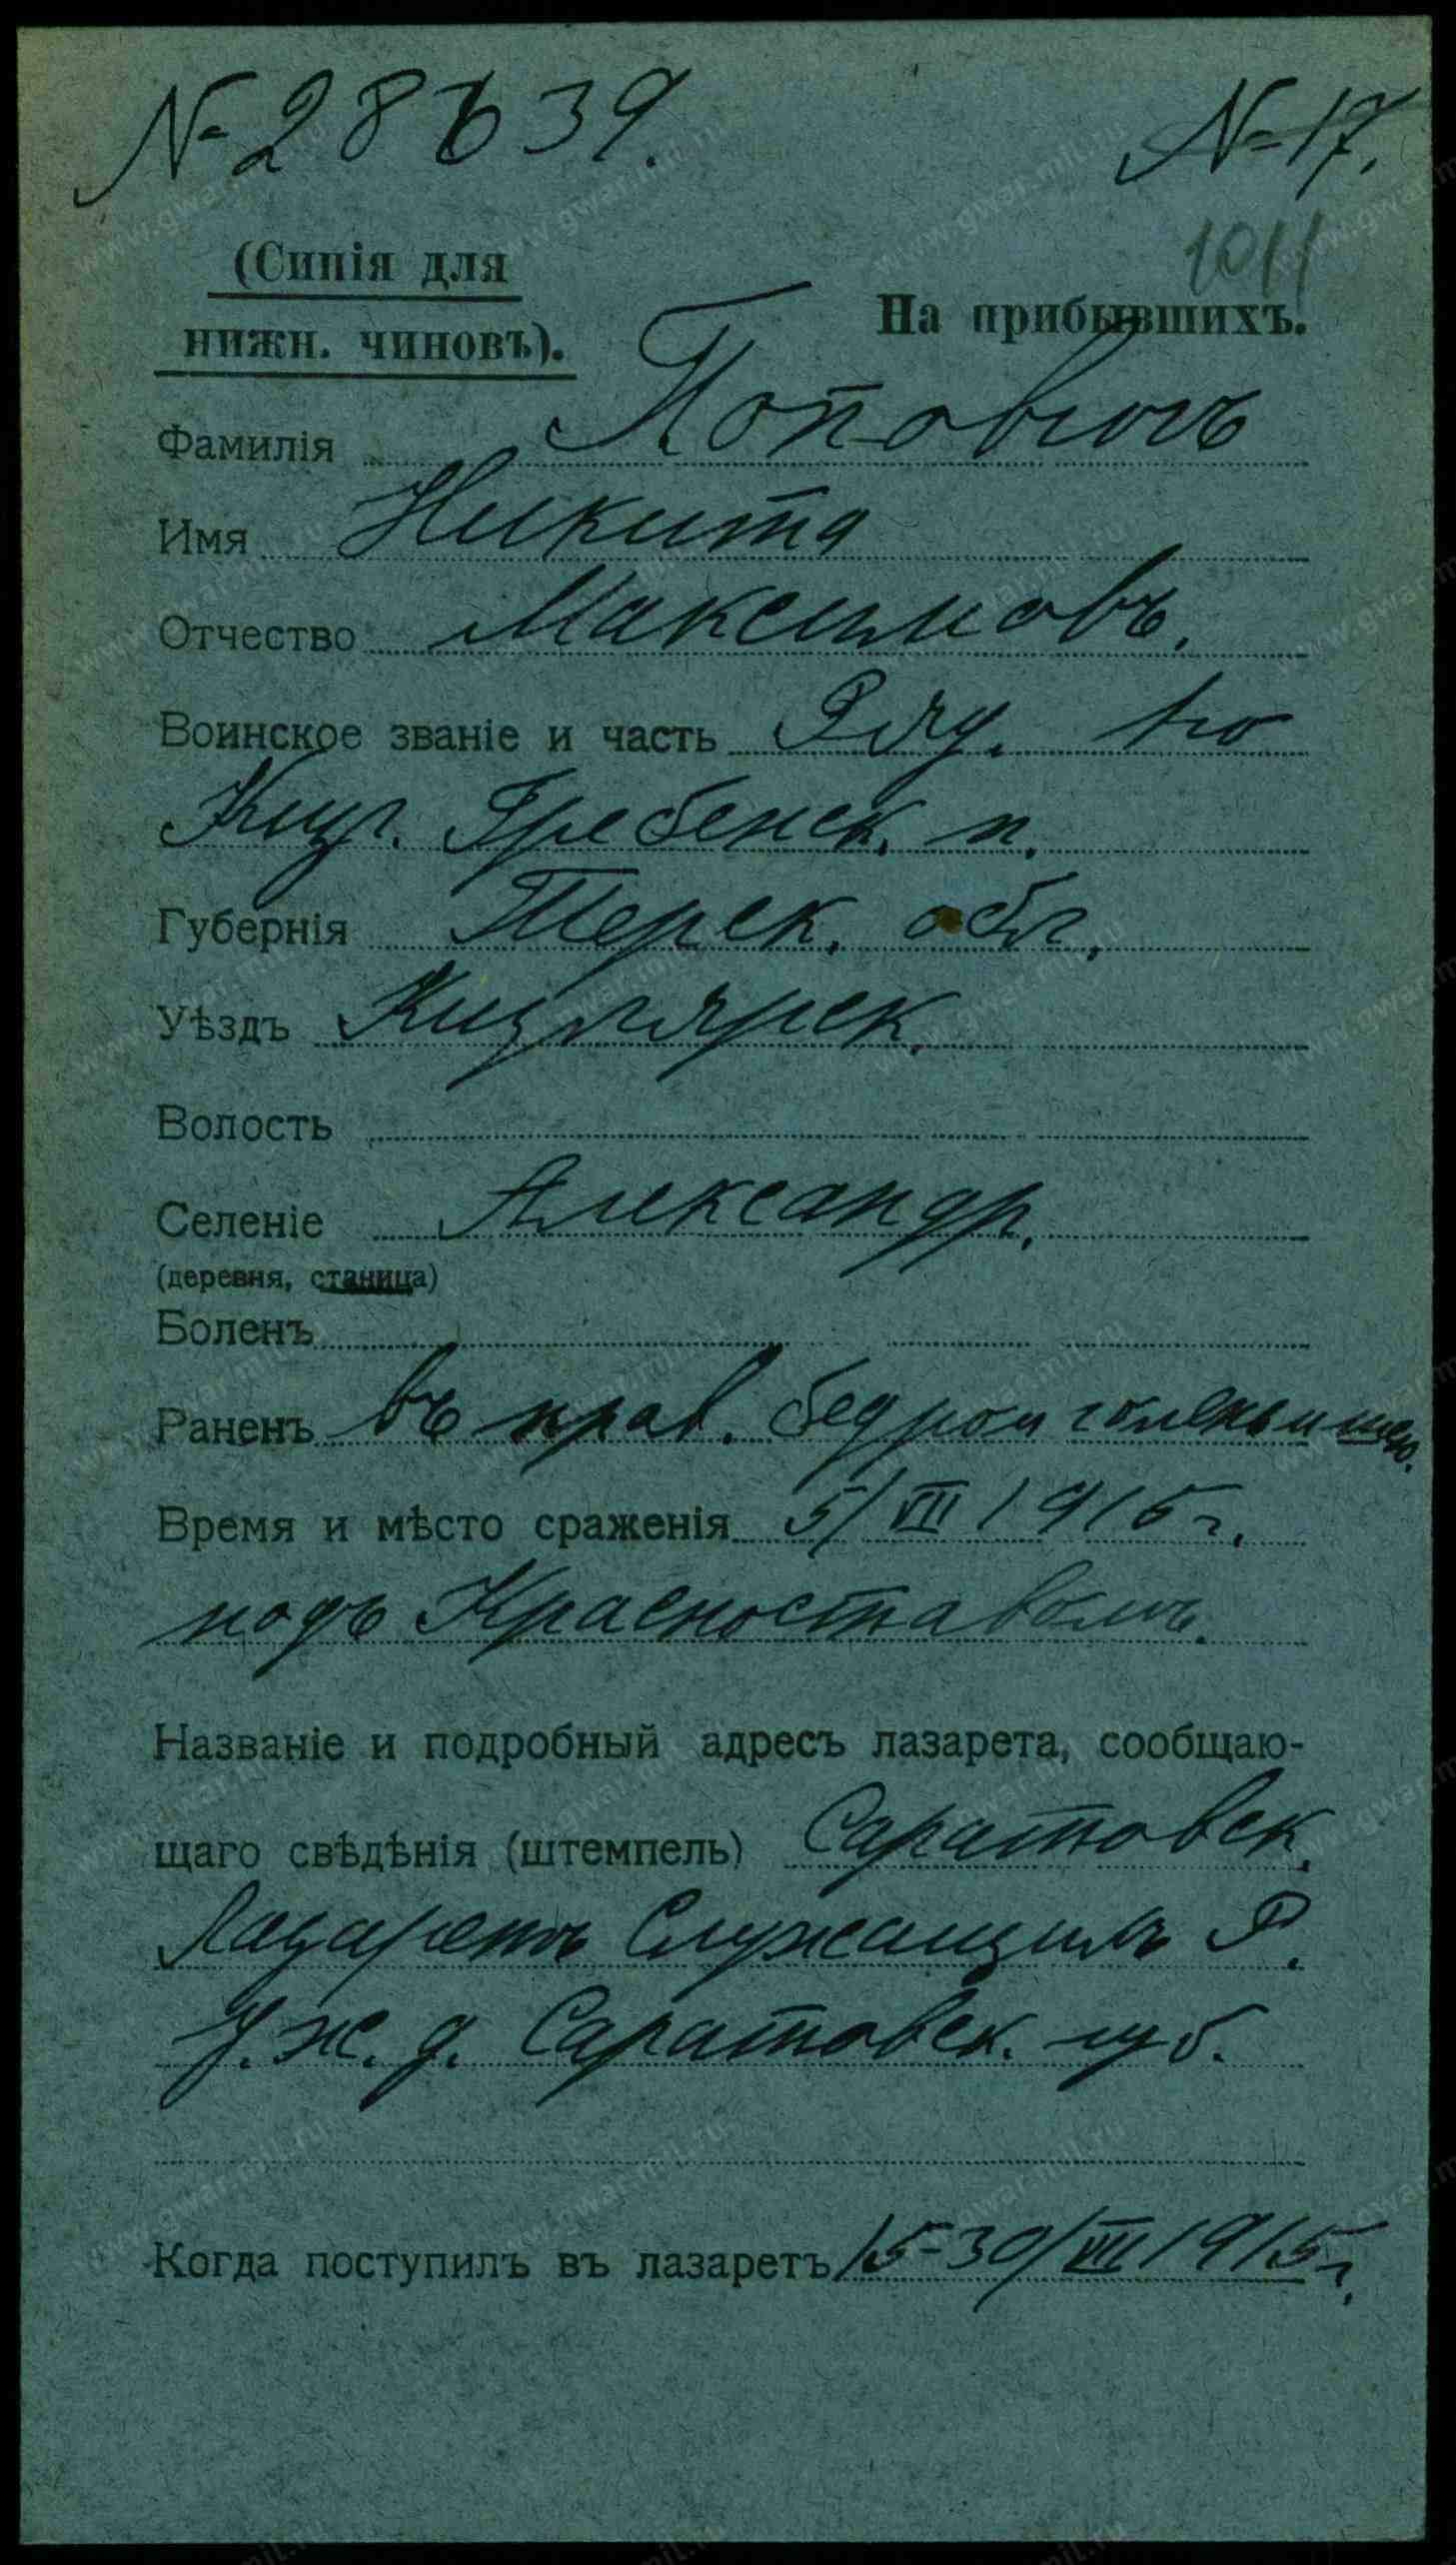 № 28639. № 17.
1011
(Синія для
нижн. чиновъ).
На прибывшихъ.
Фамилія Поповичъ
Имя Никита
Отчество Максимовъ.
Воинское званіе и часть Ряд. 1го
Кизл. Гребенск. п.
Губернія Терск. обл.
Уѣздъ Кизлярск.
Волость
Селеніе Александр.
(деревня, станица)
Боленъ
Раненъ въ прав. бедро и голень и шею.
Время и мѣсто сраженія 5/VII 1915 г.
подъ Красноставомъ.
Названіе и подробный адресъ лазарета, сообщаю-
щаго свѣдѣнія (штемпель) Саратовск.
Лазаретъ Служащимъ Р.
У. ж. д. Саратовск. губ.
Когда поступилъ въ лазаретъ 15-30/VII 1915 г.
www.gwar.mil.ru